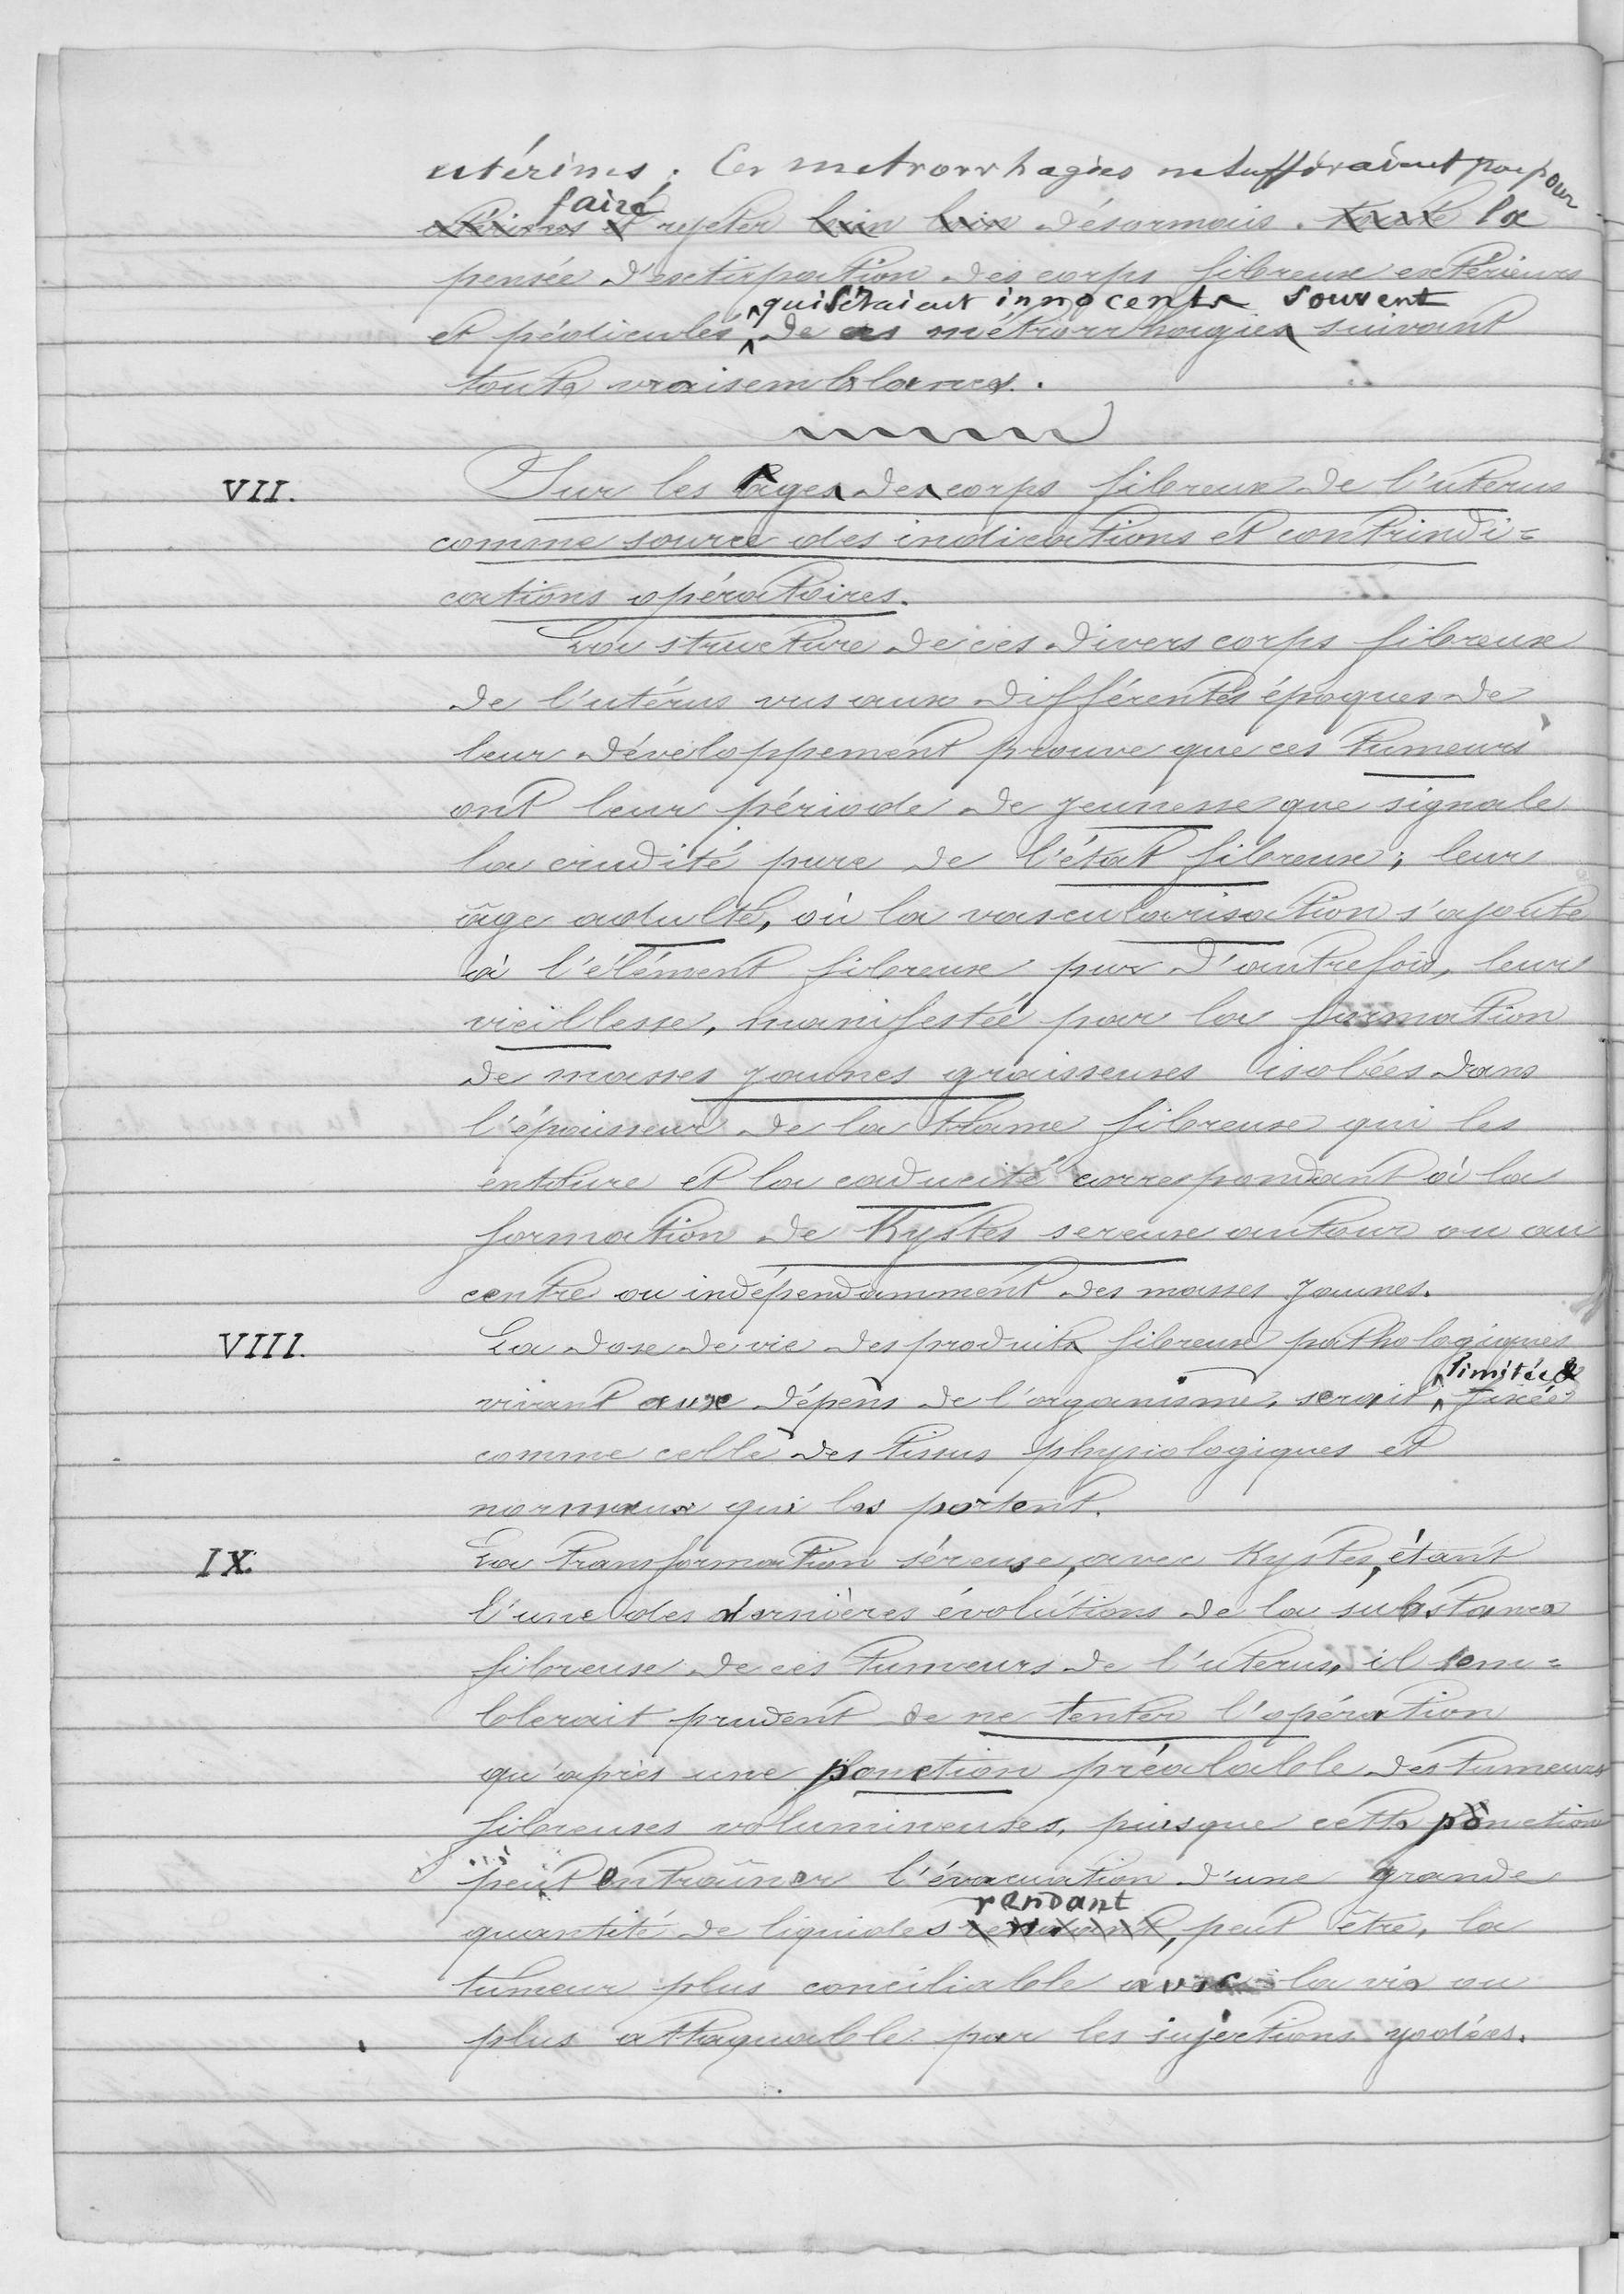 utérines. Ces metrorrhagies ne suffiraient pas pour
faire
utérines et rejeter loin loin désormais. toute la
pensée d'extirpation des corps fibreux extérieurs
qui seraient innocents souvent
et pédiculés, de ces métrorrhagies suivant
toute vraisemblance.
VII. Sur les âges des corps fibreux de l'uterus
comme source des indications et contrindi=
cations opératoires.
La structure de ces divers corps fibreux
de l'utérus vus aux différentes époques de
leur développement prouve que ces tumeurs
ont leur période de jeunesse que signale
la crudité pure de l'état fibreux; leur
âge adulte, où la vascularisation s'ajoute
à l'élément fibreux pur d'autrefois, leur
vieillesse, manifestée par la formation
de masses jaunes graisseuses isolées dans
l'épaisseur de la trame fibreuse qui les
entoure et la caducité correspondant à la
formation de Kystes sereux autour ou au
centre ou indépendamment des masses jaunes.
VIII. La dose de vie des produits fibreux pathologiques
limitée &
vivant aux dépens de l'organisme, serait fixée
comme celle des tissus physiologiques et
normaux qui les portent.
IX. La transformation séreuse, avec Kystes, étant
l'une des dernières évolutions de la substance
fibreuse de ces tumeurs de l'uterus, il sem=
blerait prudent de ne tenter l'opération
qu'après une ponction préalable des tumeurs
fibreuses volumineuses, puisque cette ponction
peut entraîner l'évacuation d'une grande
rendant
quantité de liquides rendant, peut être, la
tumeur plus conciliable avec la vie ou
plus attaquable par les injections yodées.